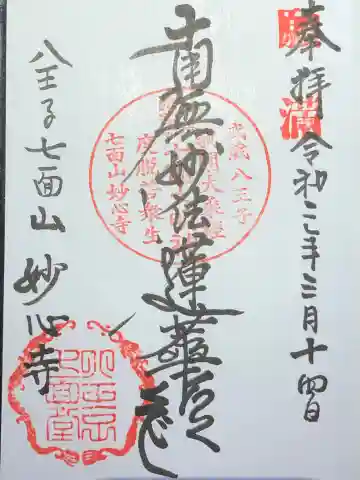 奉拝
令和二年三月十四日
南無妙法蓮華経
武蔵八王子
七面山妙心寺
八王子七面山
妙心寺